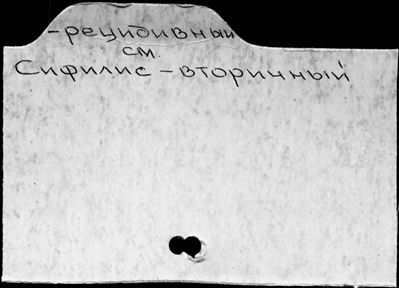 -рецидивный
см.
Сифилис - вторичный